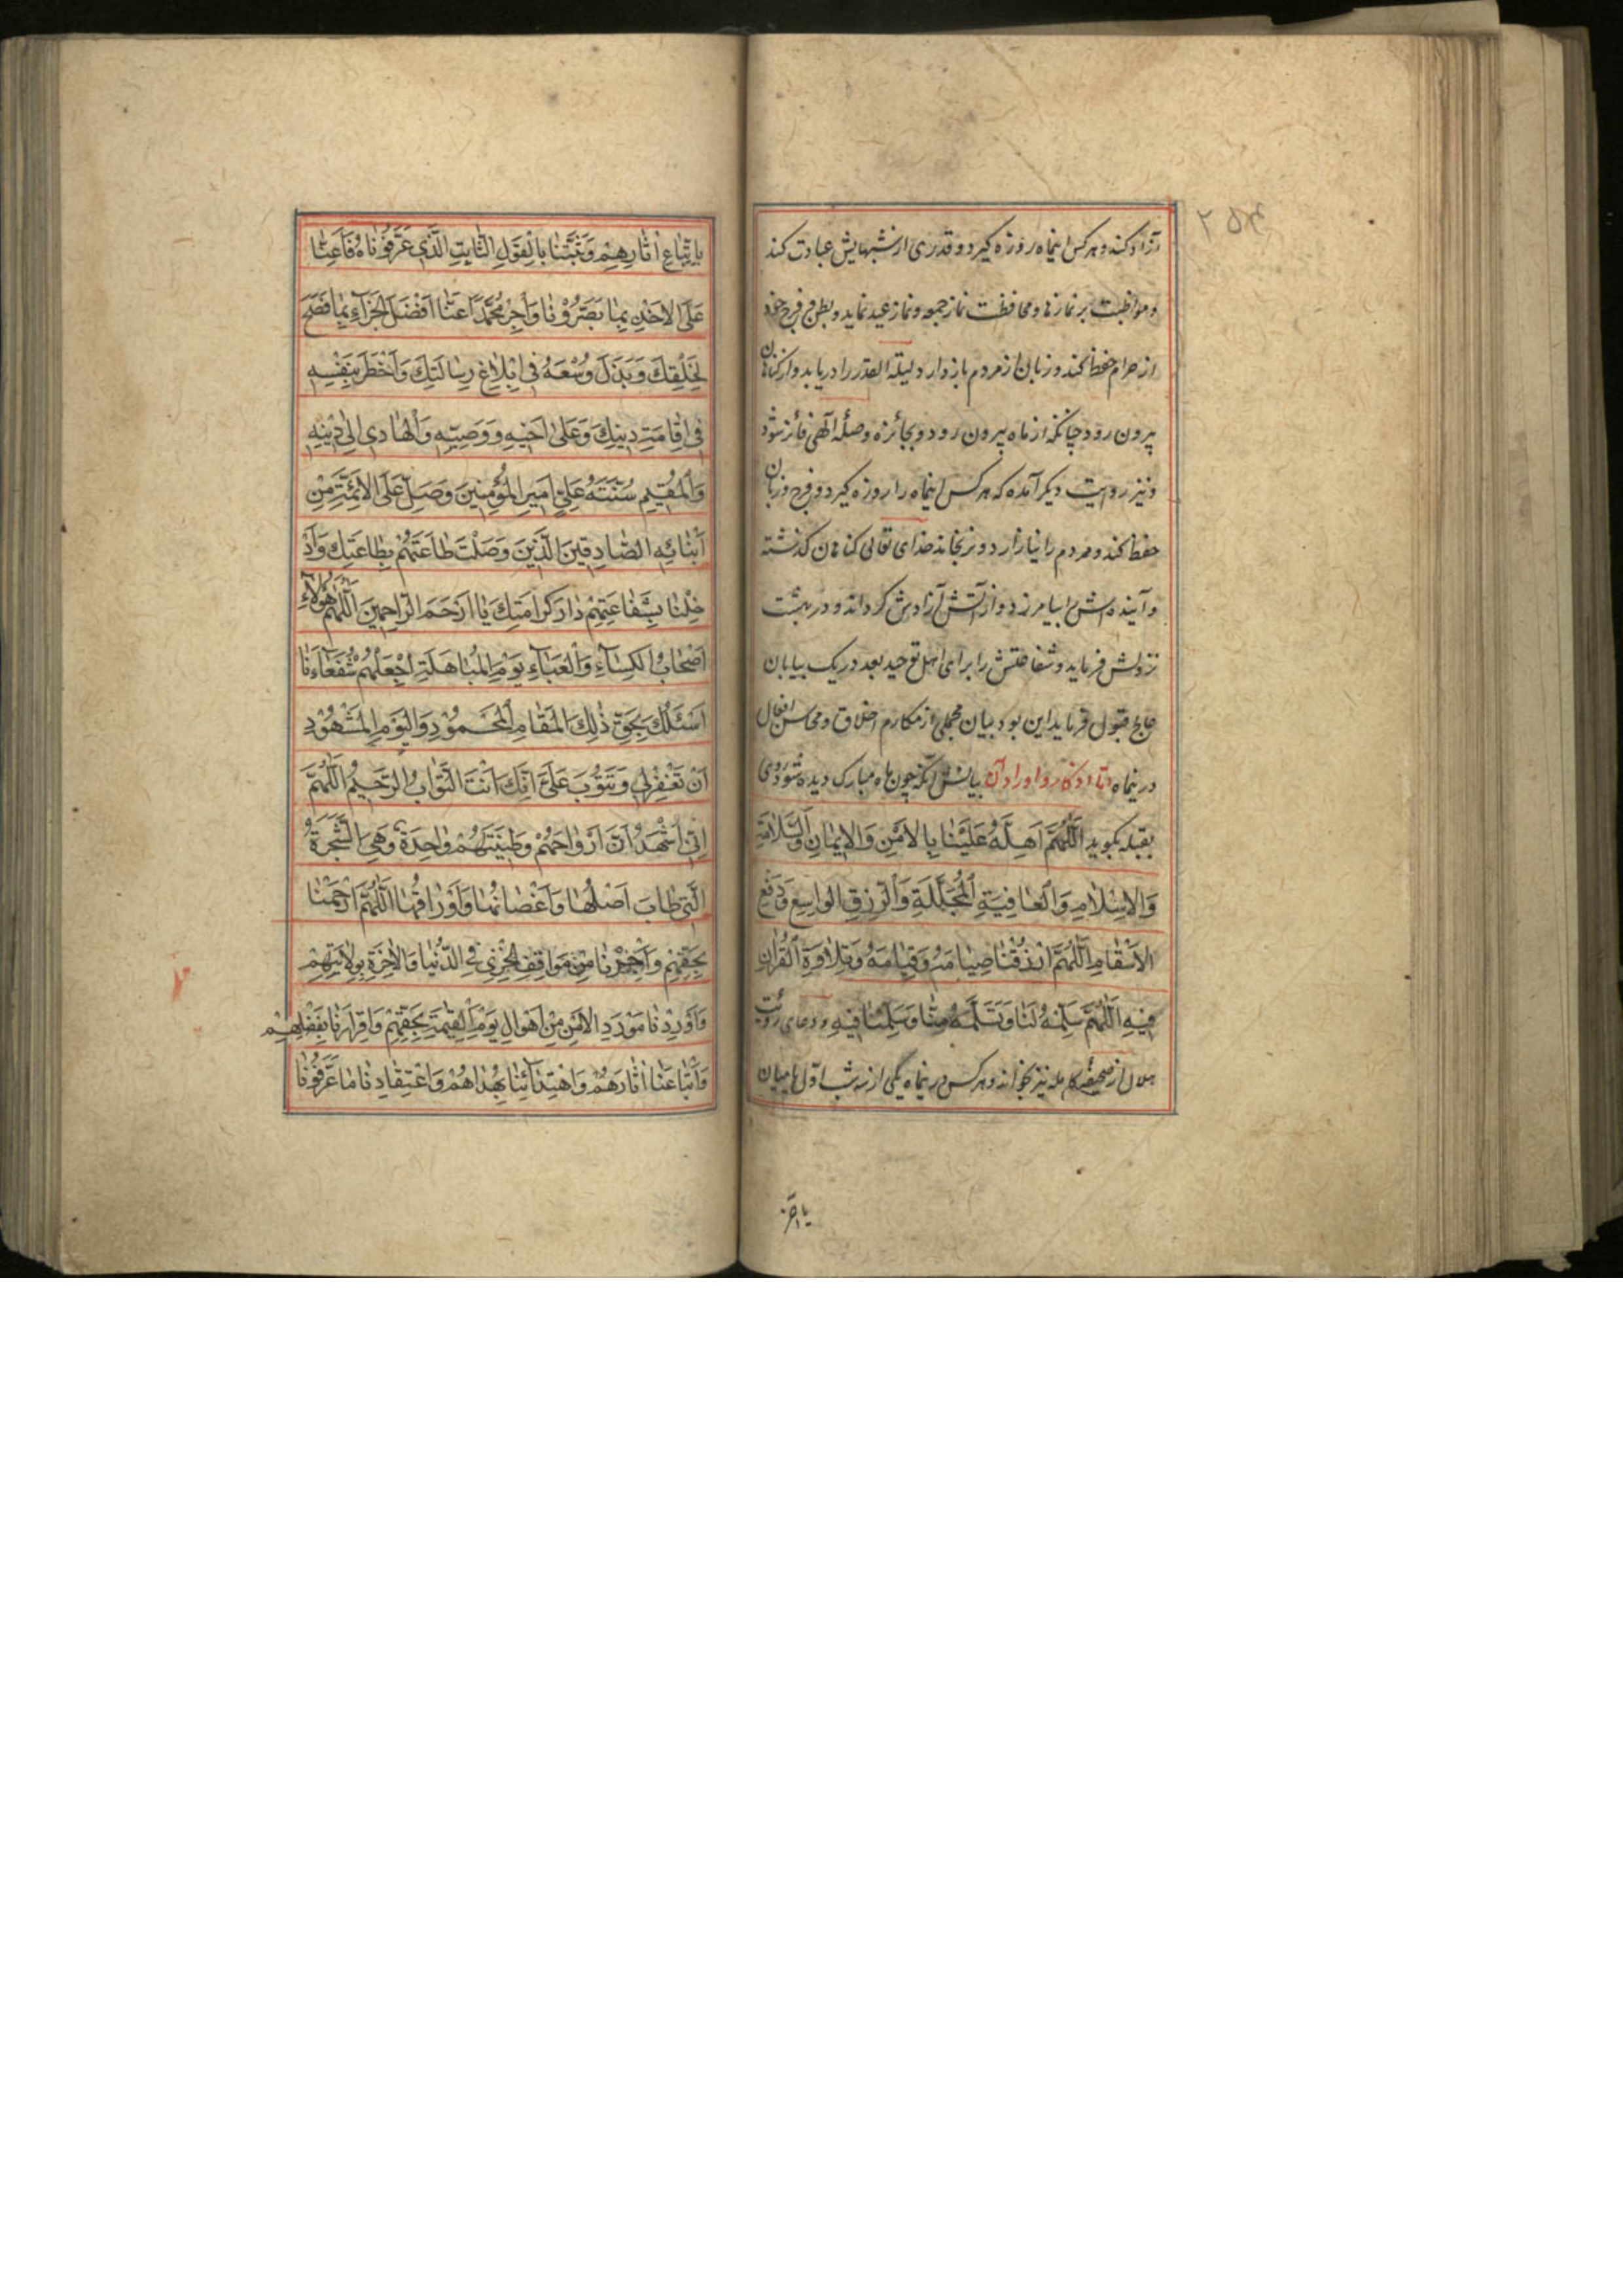 آزاد کند و هر کس اینماه روزه گیرد و قدری از شبهایش عبادت کند
و مواظبت بر نمازها و محافظت نماز جمعه و نماز عید نماید و بطن و فرج خود
از حرام حفظ کند و زبان از مردم باز دارد و لیلة القدر را دریابد و از کناهان
بیرون رود چنانکه از ماه بیرون رود و بجائزه و صلهٔ آلهی فائز شود
و نیز روایت دیکر آمده که هر کس اینماه را روزه کیرد و فرج و زبان
حفظ کند و مردم را نیازارد و نرنجاند خدای تعالی کناهان کذشته
و آینده اش را بیامرزد و از آتش آزادش کرداند و در بهشت
نزولش فرماید و شفاعتش را برای اهل توحید بعدد ریک بیابان
عالج قبول فرماید این بود بیان مجملی از مکارم اخلاق و محاسن افعال
در نماه و اما اذکار و اوراد آن بیانش آنکه چون ماه مبارک دیده شود روی
بقبله بکوید اَللّٰهُمَّ اَهِلَّهُ عَلَیْنٰا بِالاَمْنِ وَالاِیْمٰانِ وَالسَّلٰامَةِ
وَالاِسْلٰامِ وَالْعٰافِیَةِ الْمُجَلَّلَةِ وَالرِّزْقِ الْوٰاسِعِ وَدَفْعِ
الاَسْقٰامِ اَللّٰهُمَّ ارْزُقْنٰا صِیٰامَهُ وَقِیٰامَهُ وَتِلٰاوَةَ الْقُرْاٰنِ
فِیْهِ اَللّٰهُمَّ سَلِّمْهُ لَنٰا وَتَسَلَّمْهُ مِنّٰا وَسَلِّمْنٰا فِیْهِ و دعای رؤیت
هلال از صحیفهٔ کامله نیز بخواند و هر کس در نماه یکی از سه شب اوّل یا میان
یا آخر
بِاِتِّبٰاعِ اٰثٰارِهِمْ وَثَبِّتْنٰا بِالْقَوْلِ الثّٰابِتِ الَّذِی عَرَّفُوْنٰاهُ فَاَعِنّٰا
عَلَی الاَخْذِ بِمٰا بَصَّرُوْنٰا وَاجْزِ مُحَمَّدًا عَنّٰا اَفْضَلَ الْجَزٰآءِ بِمٰا نَصَحَ
لِخَلْقِكَ وَبَذَلَ وُسْعَهُ فِی اِبْلٰاغِ رِسٰالَتِكَ وَاَخْطَرَ بِنَفْسِهِ
فِی اِقٰامَةِ دِینِكَ وَعَلٰی اَخِیْهِ وَوَصِیِّهِ وَالْهٰادِی اِلٰی دِیْنِهِ
وَالْمُقِیْمِ سُنَّتَهُ عَلِیٍّ اَمِیرِ الْمُؤْمِنِینَ وَصَلِّ عَلَی الاَئِمَّةِ مِنْ
اَبْنٰائِهِ الصّٰادِقِینَ الَّذِینَ وَصَلْتَ طٰاعَتَهُمْ بِطٰاعَتِكَ وَاَدْ
خِلْنٰا بِشَفٰاعَتِهِمْ دٰارَ كَرٰامَتِكَ یٰا اَرْحَمَ الرّٰاحِمِینَ اَللّٰهُمَّ هٰؤُلٰآءِ
اَصْحٰابُ الْكِسٰآءِ وَالْعَبٰآءِ یَوْمَ الْمُبٰاهَلَةِ اِجْعَلْهُمْ شُفَعٰآءَنٰا
اَسْئَلُكَ بِحَقِّ ذٰلِكَ الْمَقٰامِ الْمَحْمُوْدِ وَالْیَوْمِ الْمَشْهُوْدِ
اَنْ تَغْفِرَلِی وَتَتُوْبَ عَلَیَّ اِنَّكَ اَنْتَ التَّوّٰابُ الرَّحِیمُ اَللّٰهُمَّ
اِنِّی اَشْهَدُ اَنَّ اَرْوٰاحَهُمْ وَطِیْنَتَهُمْ وٰاحِدَةٌ وَهِیَ الشَّجَرَةُ
الَّتِی طٰابَ اَصْلُهٰا وَاَغْصٰانُهٰا وَاَوْرٰاقُهٰا اَللّٰهُمَّ ارْحَمْنٰا
بِحَقِّهِمْ وَاَجِرْنٰا مِنْ مَوٰاقِفِ الْخِزْیِ فِی الدُّنْیٰا وَالاٰخِرَةِ بِوِلٰایَتِهِمْ
وَاَوْرِدْنٰا مَوْرِدَ الاَمْنِ مِنْ اَهْوٰالِ یَوْمِ الْقِیٰمَةِ بِحَقِّهِمْ وَاِقْرٰارِنٰا بِفَضْلِهِمْ
وَاتِّبٰاعِنٰا اٰثٰارَهُمْ وَاهْتِدٰائِنٰا بِهُدٰاهُمْ وَاعْتِقٰادِنٰا مٰا عَرَّفُوْنٰا